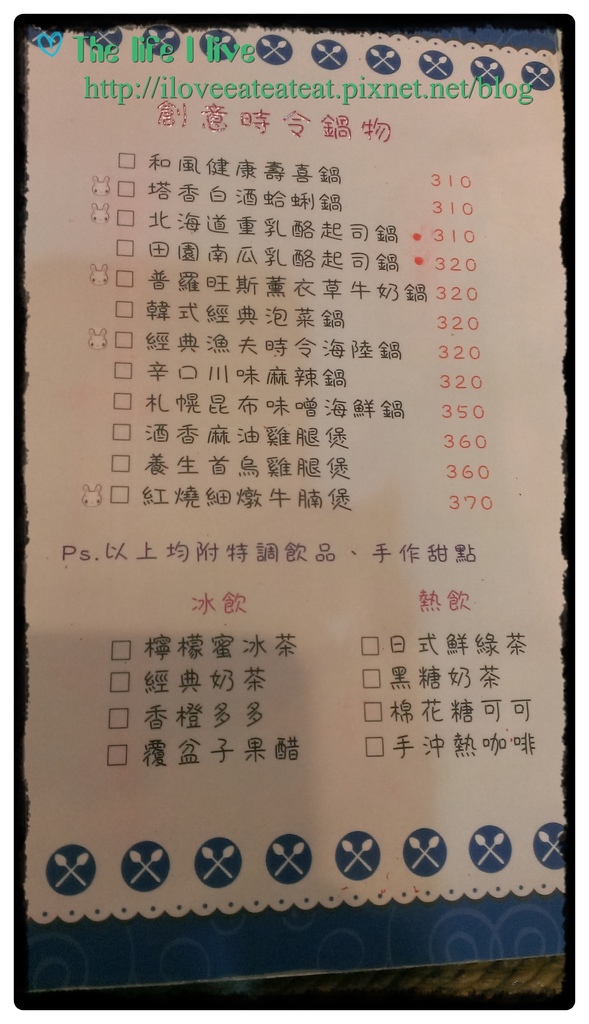 The life I live
http://iloveeateateat.pixnet.net/blog
創意時令鍋物
和風健康壽喜鍋 310
塔香白酒蛤蜊鍋 310
北海道重乳酪起司鍋 310
田園南瓜乳酪起司鍋 320
普羅旺斯薰衣草牛奶鍋 320
韓式經典泡菜鍋 320
經典漁夫時令海陸鍋 320
辛口川味麻辣鍋 320
札幌昆布味噌海鮮鍋 350
酒香麻油雞腿煲 360
養生首烏雞腿煲 360
紅燒細燉牛腩煲 370
Ps.以上均附特調飲品、手作甜點
冰飲 熱飲
檸檬蜜冰茶 日式鮮綠茶
經典奶茶 黑糖奶茶
香橙多多 棉花糖可可
覆盆子果醋 手沖熱咖啡